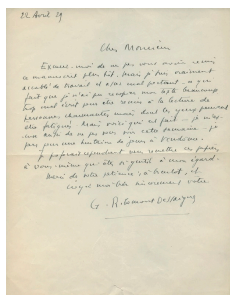 22 Avril 29
Cher Monsieur
Excusez-moi de ne pas vous avoir remis
ce manuscrit plus tôt. Mais je suis vraiment
accablé de travail et assez mal portant, ce qui
fait que je n'ai pu recopier mon texte beaucoup
trop mal écrit pour être remis à la lecture de
personnes charmantes mais dont les yeux peuvent
être fatigués. Mais voici qui est fait - je
de ne pas vous voir cette semaine - je
pars pour une huitaine de jours à Vendôme.
Je préférerais cependant vous remettre ces papiers
à vous-même qui êtes si gentil à mon égard.
Merci de votre patience, à bientôt, et
croyez moi bien sincèrement votre
G. Ribemont Dessaignes